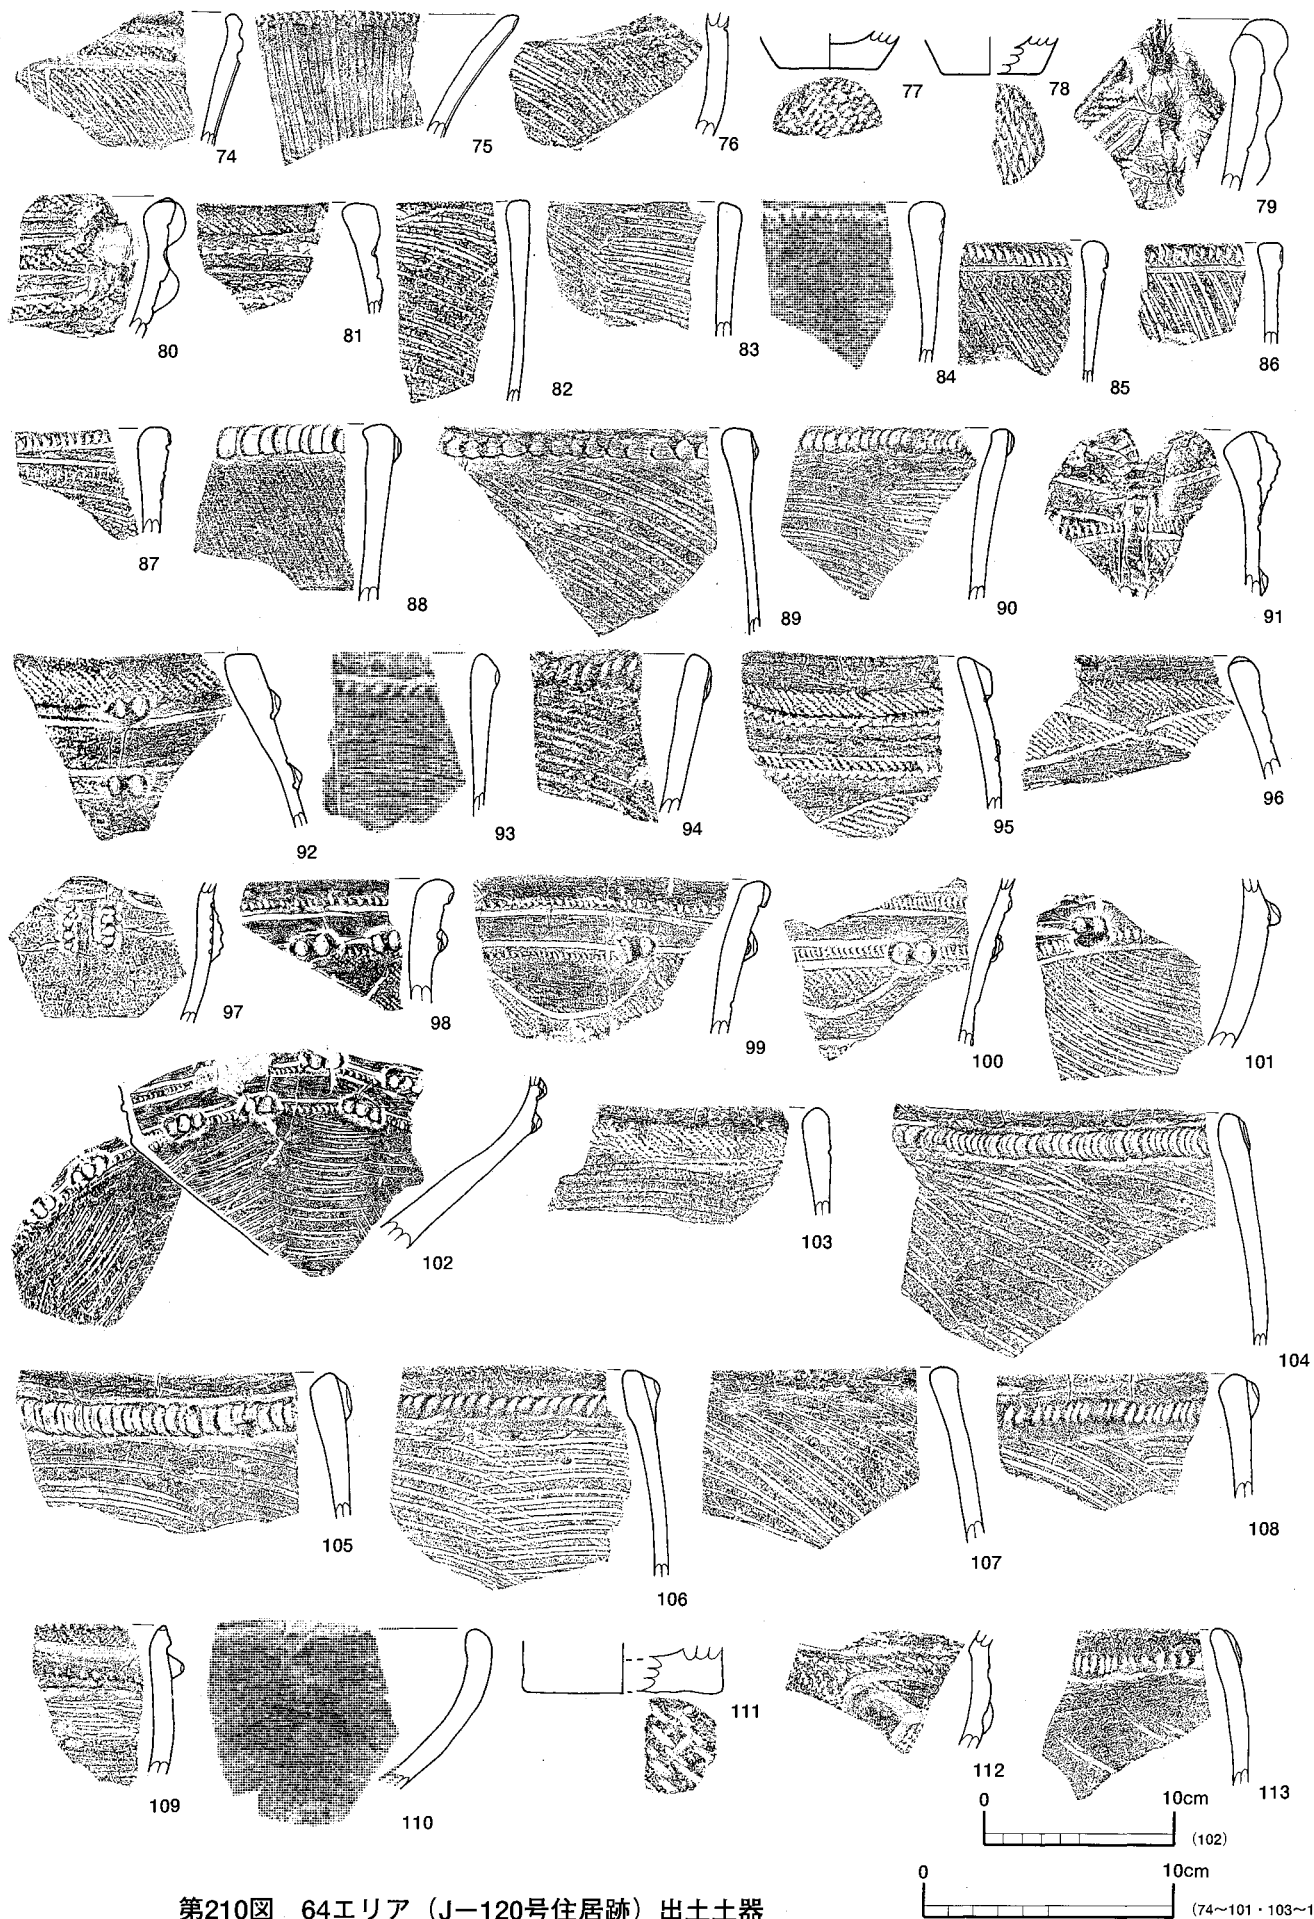 74 75 76 77 78 79
80 81 82 83 84 85 86
87 88 89 90 91
92 93 94 95 96
97 98 99 100 101
102 103 104
105 106 107 108
109 110 111 112 113
0 10cm
(102)
0 10cm
(74〜101・103〜1
第210図 64エリア（J−120号住居跡）出土土器